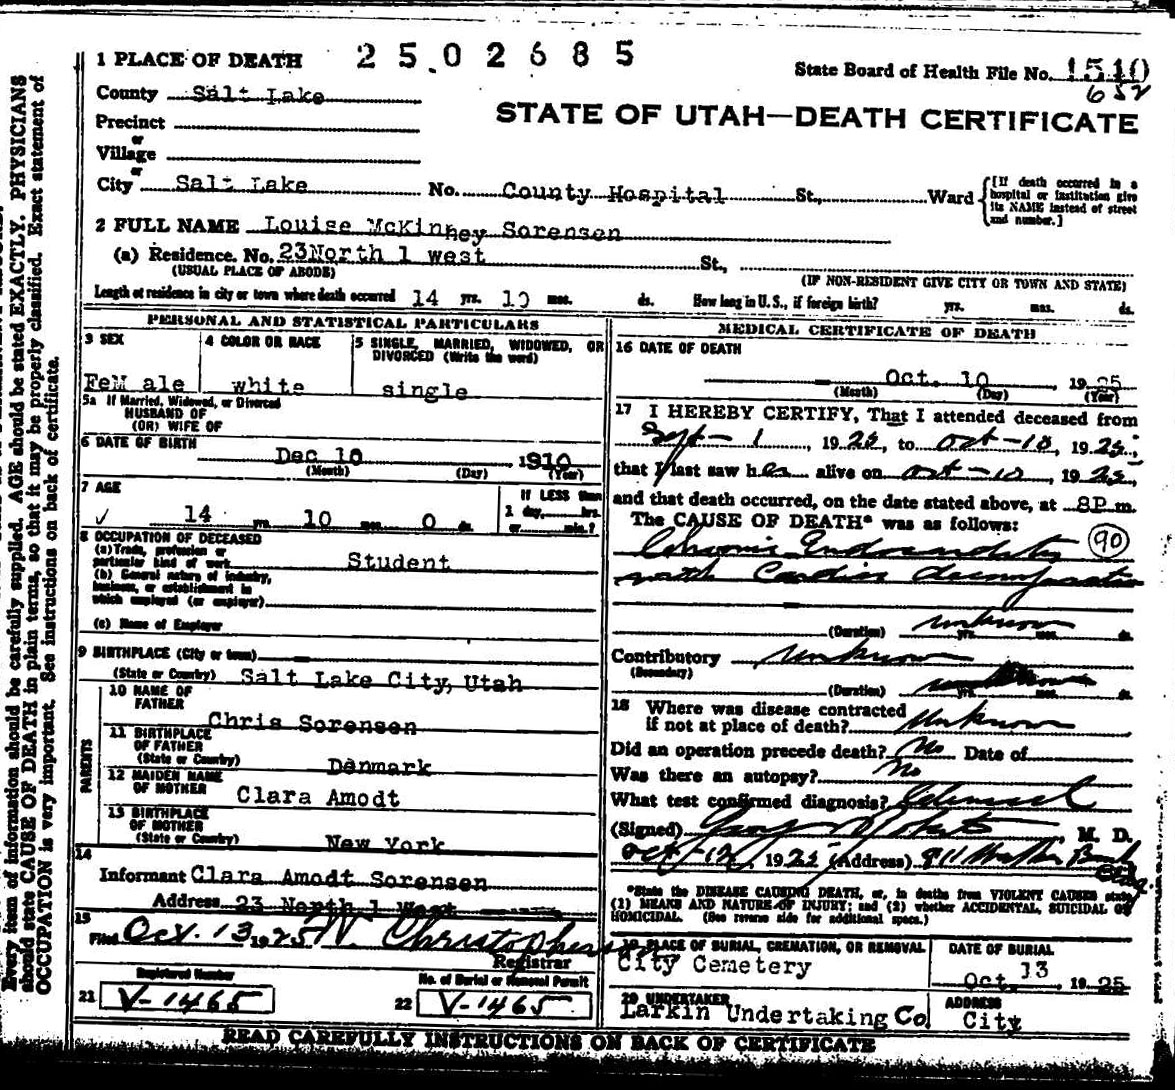 1 PLACE OF DEATH 2502685
State Board of Health File No. 1510
652
County Salt Lake
STATE OF UTAH—DEATH CERTIFICATE
Precinct
or
Village
or
City Salt Lake No. County Hospital St., Ward
[If death occurred in a hospital or institution give its NAME instead of street and number.]
2 FULL NAME Louise McKinney Sorensen
(a) Residence. No. 23North 1 west St.,
(USUAL PLACE OF ABODE) (IF NON-RESIDENT GIVE CITY OR TOWN AND STATE)
Length of residence in city or town where death occurred 14 yrs. 10 mos. ds. How long in U. S., if foreign birth? yrs. mos. ds.
PERSONAL AND STATISTICAL PARTICULARS
3 SEX 4 COLOR OR RACE 5 SINGLE, MARRIED, WIDOWED, OR
DIVORCED (Write the word)
FeM ale white single
5a If Married, Widowed, or Divorced
HUSBAND OF
(OR) WIFE OF
6 DATE OF BIRTH
Dec 10 1910
(Month) (Day) (Year)
7 AGE If LESS than
14 yrs. 10 mos. 0 ds. 1 day, hrs.
or min.?
8 OCCUPATION OF DECEASED
(a) Trade, profession or
particular kind of work Student
(b) General nature of industry,
business, or establishment in
which employed (or employer)
(c) Name of Employer
9 BIRTHPLACE (City or town)
(State or Country) Salt Lake City, Utah
PARENTS
10 NAME OF
FATHER Chris Sorensen
11 BIRTHPLACE
OF FATHER
(State or Country) Denmark
12 MAIDEN NAME
OF MOTHER Clara Amodt
13 BIRTHPLACE
OF MOTHER
(State or Country) New York
14
Informant Clara Amodt Sorensen
Address 23 North 1 West
15
Filed Oct. 13 1925 W. Christopherson
Registrar
Registered Number No. of Burial or Removal Permit
21 V-1465 22 V-1465
MEDICAL CERTIFICATE OF DEATH
16 DATE OF DEATH
Oct. 10, 1925
(Month) (Day) (Year)
17 I HEREBY CERTIFY, That I attended deceased from
Sept - 1, 1925, to Oct - 10, 1925;
that I last saw her alive on Oct - 10, 1925,
and that death occurred, on the date stated above, at 8P m.
The CAUSE OF DEATH* was as follows:
Chronic Endocarditis 90
with Cardiac decompensation
(Duration) unknown yrs. mos. ds.
Contributory unknown
(Secondary)
(Duration) yrs. mos. ds.
18 Where was disease contracted
if not at place of death? Unknown
Did an operation precede death? No Date of
Was there an autopsy? No
What test confirmed diagnosis? Clinical
(Signed) M. D.
Oct-12, 1925 (Address) 911 Walker Bank
Bldg.
*State the DISEASE CAUSING DEATH, or, in deaths from VIOLENT CAUSES state
(1) MEANS AND NATURE OF INJURY; and (2) whether ACCIDENTAL, SUICIDAL OR
HOMICIDAL. (See reverse side for additional space.)
19 PLACE OF BURIAL, CREMATION, OR REMOVAL DATE OF BURIAL
City Cemetery Oct. 13 1925
20 UNDERTAKER ADDRESS
Larkin Undertaking Co. City
READ CAREFULLY INSTRUCTIONS ON BACK OF CERTIFICATE
Every item of information should be carefully supplied. AGE should be stated EXACTLY. PHYSICIANS
should state CAUSE OF DEATH in plain terms, so that it may be properly classified. Exact statement of
OCCUPATION is very important. See instructions on back of certificate.